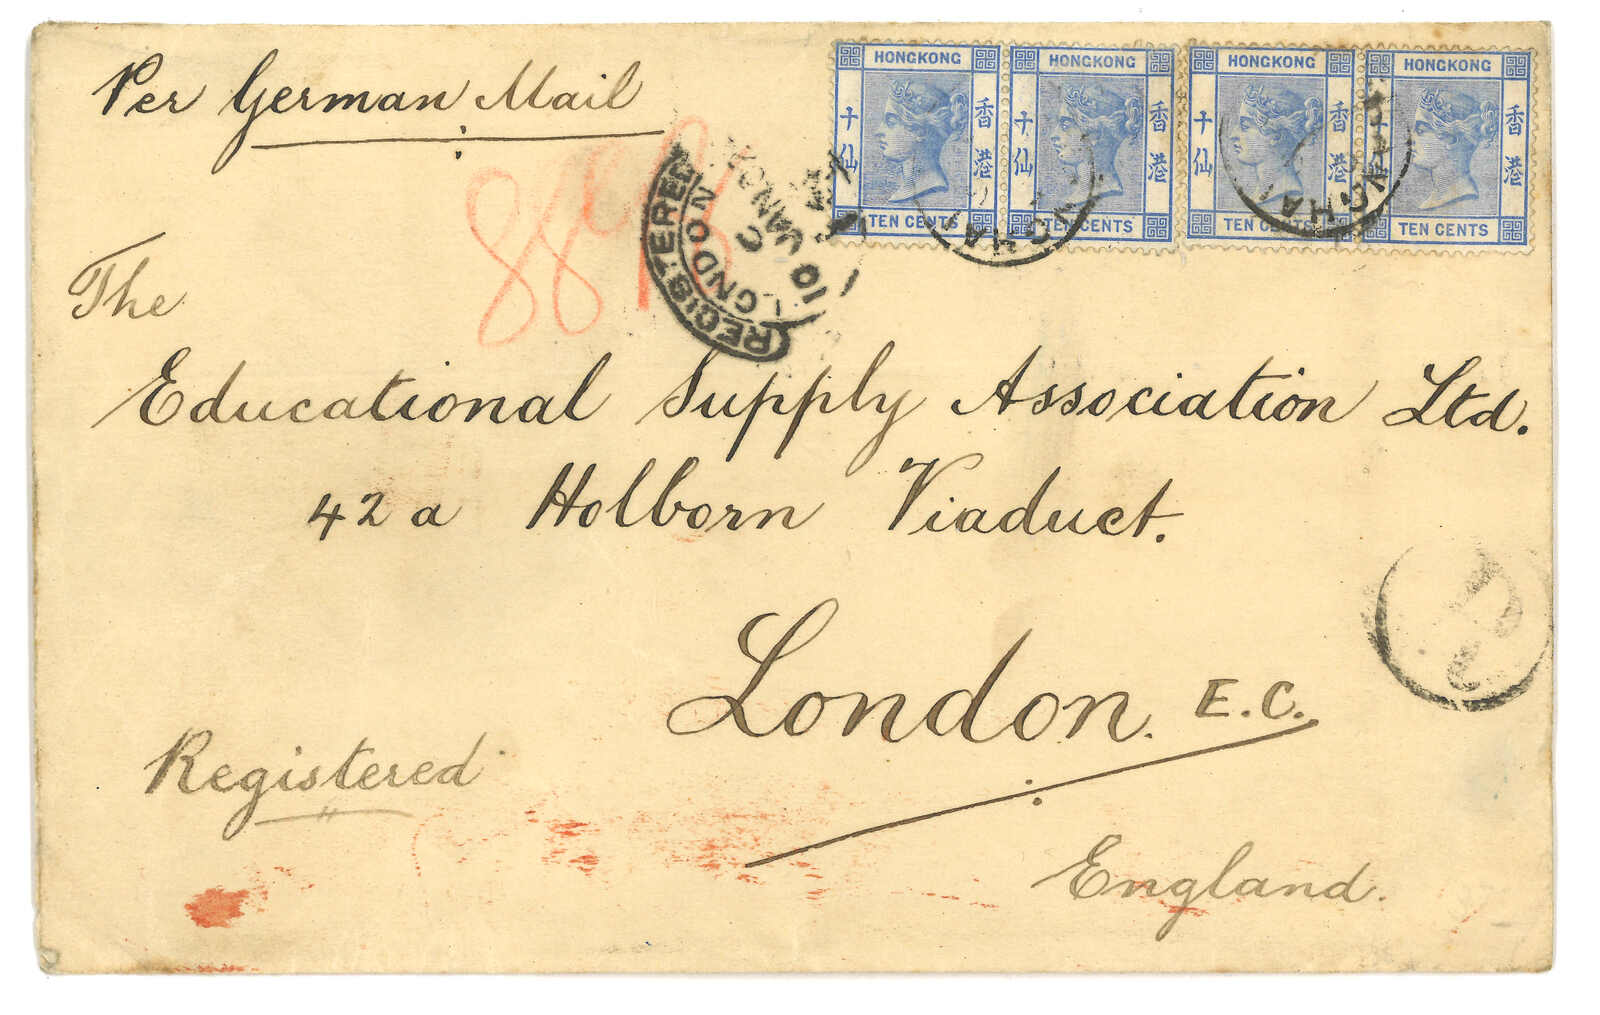 Per German Mail
HONGKONG HONGKONG HONGKONG HONGKONG
香港 香港 香港 香港
十仙 十仙 十仙 仙
TEN CENTS TEN CENTS TEN CENTS TEN CENTS
REGISTERED
LONDON
C
10 JAN 02
88
The
Educational Supply Association Ltd.
42a Holborn Viaduct.
London. E.C.
Registered
England.